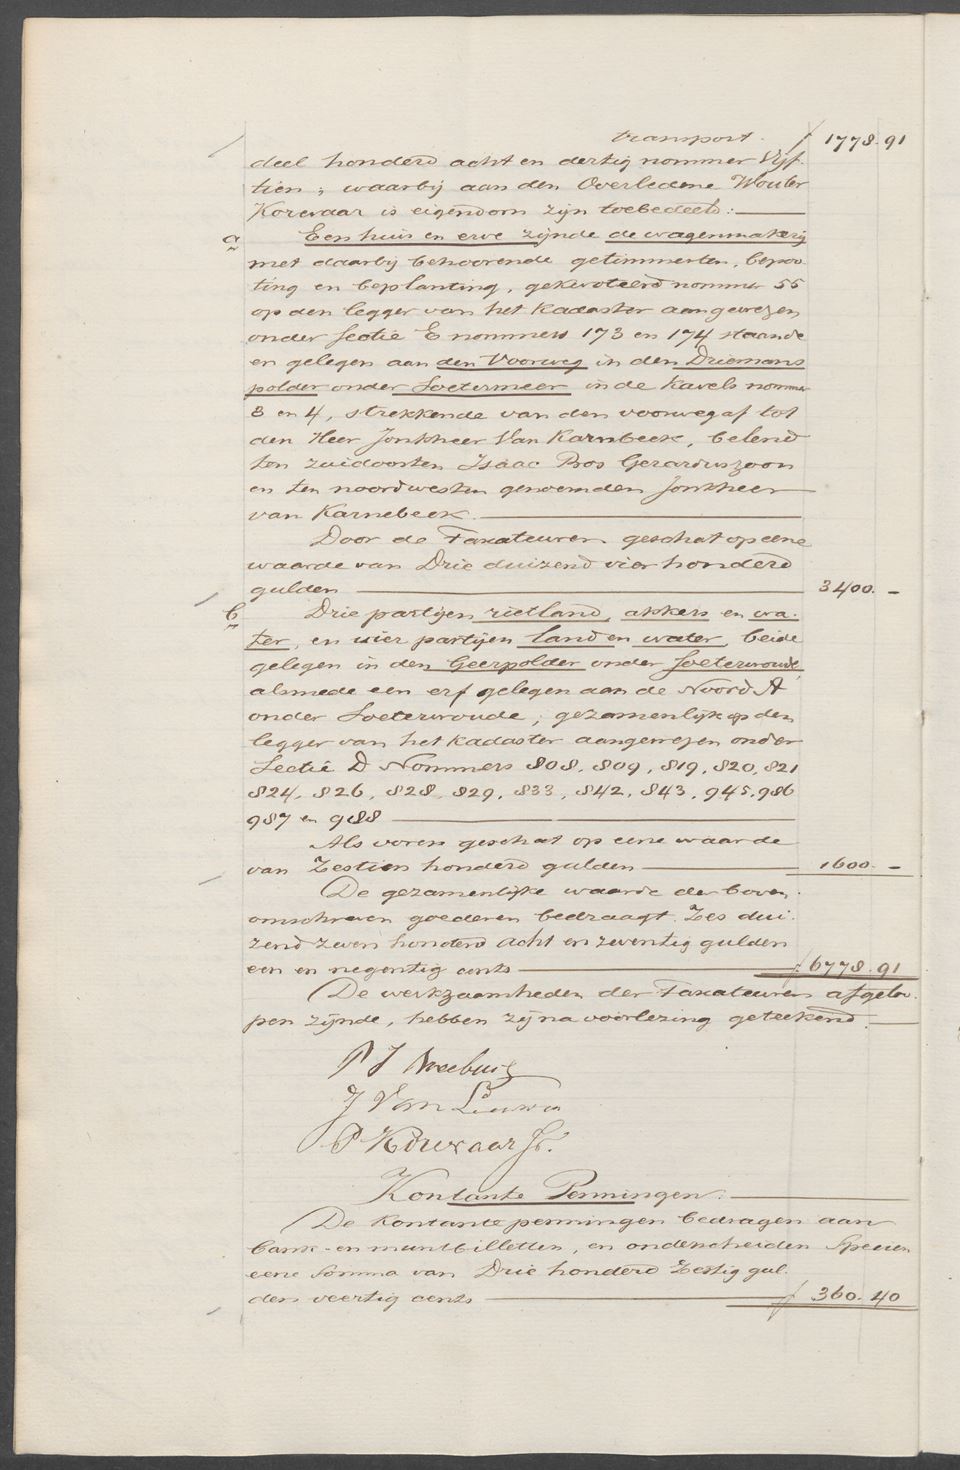 transport. f 1778.91
deel honderd acht en dertig nommer Vijf-
tien; waarbij aan den Overledene Wouter
Korevaar is eigendom zijn toebedeeld:
a Een huis en erve zijnde de wagenmakerij
met daarbij behoorende getimmerten, bepoo-
ting en beplanting, gekwoteerd nommer 55
op den legger van het Kadaster aangewezen
onder Sectie E nommers 173 en 174 staande
en gelegen aan den Voorweg in den Driemans
polder onder Soetermeer in de Kavels nommer
3 en 4, strekkende van den voorweg af tot
den Heer Jonkheer Van Karnbeek, belend
ten zuidoosten Isaac Bos Gerarduszoon
en ten noordwesten genoemden Jonkheer
van Karnebeek.
Door de Taxateuren geschat op eene
waarde van Drie duizend vier honderd
gulden 3400. -
b Drie partijen rietland, akkers en wa-
ter, en vier partijen land en water, beide
gelegen in den Geerpolder onder Soeterwoude,
alsmede een erf gelegen aan de Noord A
onder Soeterwoude, gezamenlijk op den
legger van het Kadaster aangewezen onder
Sectie D Nommers 808, 809, 819, 820, 821
824, 826, 828, 829, 833, 842, 843, 945, 986
987 en 988
Als voren geschat op eene waarde
van Zestien honderd gulden 1600. -
De gezamenlijke waarde der boven
omschreven goederen bedraagt Zes dui-
zend zeven honderd acht en zeventig gulden
een en negentig cents f 6778.91
De werkzaamheden der Taxateuren afgeloo-
pen zijnde, hebben zij na voorlezing geteekend.
P J
J Van Leeuwen
P Korevaar Jr.
Kontante Penningen:
De Kontante penningen bedragen aan
bank- en muntbilletten, en onderscheiden Specien
eene Somma van Drie honderd Zestig gul-
den veertig cents f 360.40